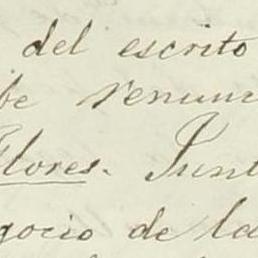 del escrito
be renun
Flores. Junt
gocio de la